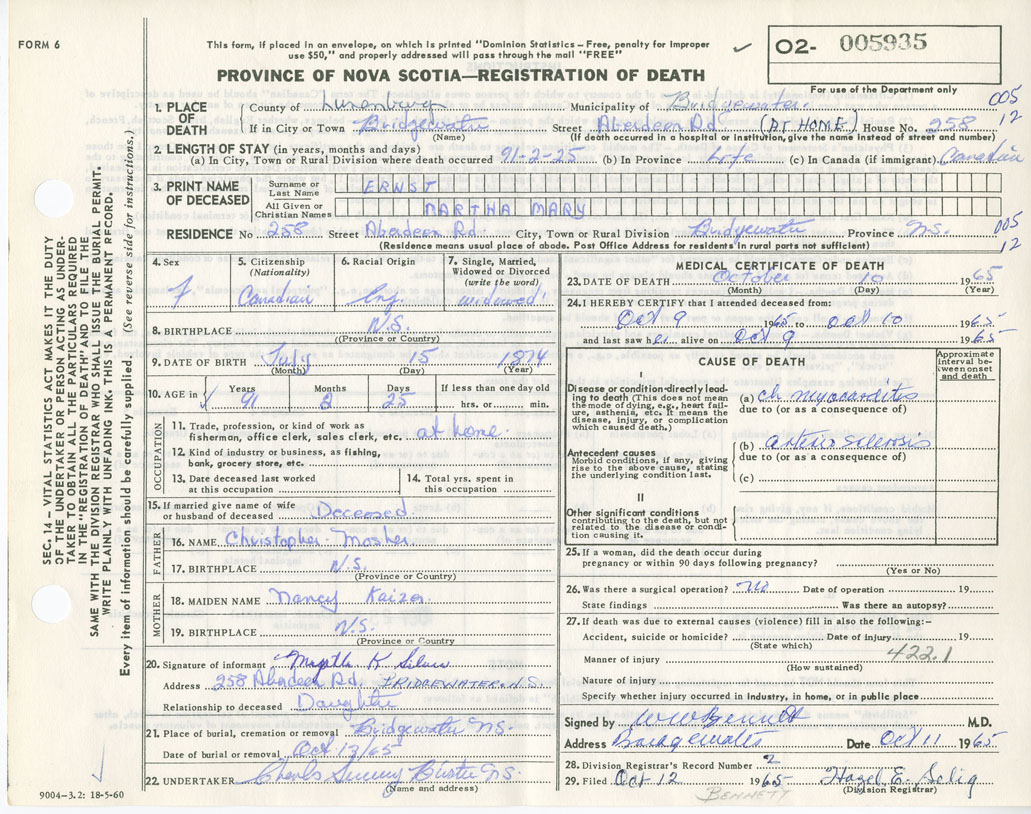 FORM 6
This form, if placed in an envelope, on which is printed "Dominion Statistics – Free, penalty for improper
use $50," and properly addressed will pass through the mail "FREE"
✓
O2- 005935
PROVINCE OF NOVA SCOTIA—REGISTRATION OF DEATH
For use of the Department only
005
12
1. PLACE OF DEATH
County of Lunenburg Municipality of Bridgewater.
If in City or Town Bridgewater Street Aberdeen Rd (AT HOME) House No. 258
(Name) (If death occurred in a hospital or institution, give the name instead of street and number)
2. LENGTH OF STAY (in years, months and days)
(a) In City, Town or Rural Division where death occurred 91-2-25 (b) In Province Life (c) In Canada (if immigrant) Canadian
3. PRINT NAME OF DECEASED
Surname or Last Name ERNST
All Given or Christian Names MARTHA MARY
RESIDENCE No 258 Street Aberdeen Rd. City, Town or Rural Division Bridgewater Province N.S.
(Residence means usual place of abode. Post Office Address for residents in rural parts not sufficient)
005
12
4. Sex F
5. Citizenship (Nationality) Canadian
6. Racial Origin Eng.
7. Single, Married, Widowed or Divorced (write the word) widowed
8. BIRTHPLACE N.S.
(Province or Country)
9. DATE OF BIRTH July 15 1874
(Month) (Day) (Year)
10. AGE in Years 91 Months 2 Days 25 If less than one day old hrs. or min.
OCCUPATION
11. Trade, profession, or kind of work as
fisherman, office clerk, sales clerk, etc. at home.
12. Kind of industry or business, as fishing,
bank, grocery store, etc.
13. Date deceased last worked
at this occupation
14. Total yrs. spent in
this occupation
15. If married give name of wife
or husband of deceased Deceased.
FATHER
16. NAME Christopher Mosher
17. BIRTHPLACE N.S.
(Province or Country)
MOTHER
18. MAIDEN NAME Nancy Kaizer
19. BIRTHPLACE N.S.
(Province or Country)
20. Signature of informant K
Address 258 Aberdeen Rd. BRIDGEWATER, N.S.
Relationship to deceased Daughter
21. Place of burial, cremation or removal Bridgewater N.S.
Date of burial or removal Oct 13/65
22. UNDERTAKER N.S.
(Name and address)
MEDICAL CERTIFICATE OF DEATH
23. DATE OF DEATH October 10 1965
(Month) (Day) (Year)
24. I HEREBY CERTIFY that I attended deceased from:
Oct 9 1965 to Oct 10 1965
and last saw her alive on Oct 9 1965
CAUSE OF DEATH
Approximate
interval be-
tween onset
and death
I
Disease or condition directly lead-
ing to death (This does not mean
the mode of dying, e.g., heart fail-
ure, asthenia, etc. It means the
disease, injury, or complication
which caused death.)
(a) ch myocarditis
due to (or as a consequence of)
Antecedent causes
Morbid conditions, if any, giving
rise to the above cause, stating
the underlying condition last.
(b) arterio sclerosis
due to (or as a consequence of)
(c)
II
Other significant conditions
contributing to the death, but not
related to the disease or condi-
tion causing it.
25. If a woman, did the death occur during
pregnancy or within 90 days following pregnancy?
(Yes or No)
26. Was there a surgical operation? no Date of operation 19
State findings Was there an autopsy?
27. If death was due to external causes (violence) fill in also the following:—
Accident, suicide or homicide? Date of injury 19
(State which)
422.1
Manner of injury
(How sustained)
Nature of injury
Specify whether injury occurred in industry, in home, or in public place
Signed by W W Bennett M.D.
Address Bridgewater Date Oct 11 1965
28. Division Registrar's Record Number 2
29. Filed Oct 12 1965 Hazel E. Selig
(Division Registrar)
BENNETT
SEC. 14 — VITAL STATISTICS ACT MAKES IT THE DUTY
OF THE UNDERTAKER OR PERSON ACTING AS UNDER-
TAKER TO OBTAIN ALL THE PARTICULARS REQUIRED
IN THE "REGISTRATION OF DEATH" AND TO FILE THE
SAME WITH THE DIVISION REGISTRAR WHO SHALL ISSUE THE BURIAL PERMIT.
WRITE PLAINLY WITH UNFADING INK. THIS IS A PERMANENT RECORD.
Every item of information should be carefully supplied. (See reverse side for instructions.)
9004–3.2: 18-5-60